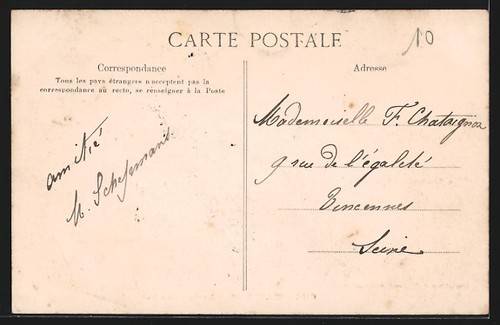 CARTE POSTALE
10
Correspondance
Tous les pays étrangers n'acceptent pas la
correspondance au recto, se renseigner à la Poste
amitié
M.
Adresse
Mademoiselle F. Chataignon
9 rue de l'égalité
Vincennes
Seine